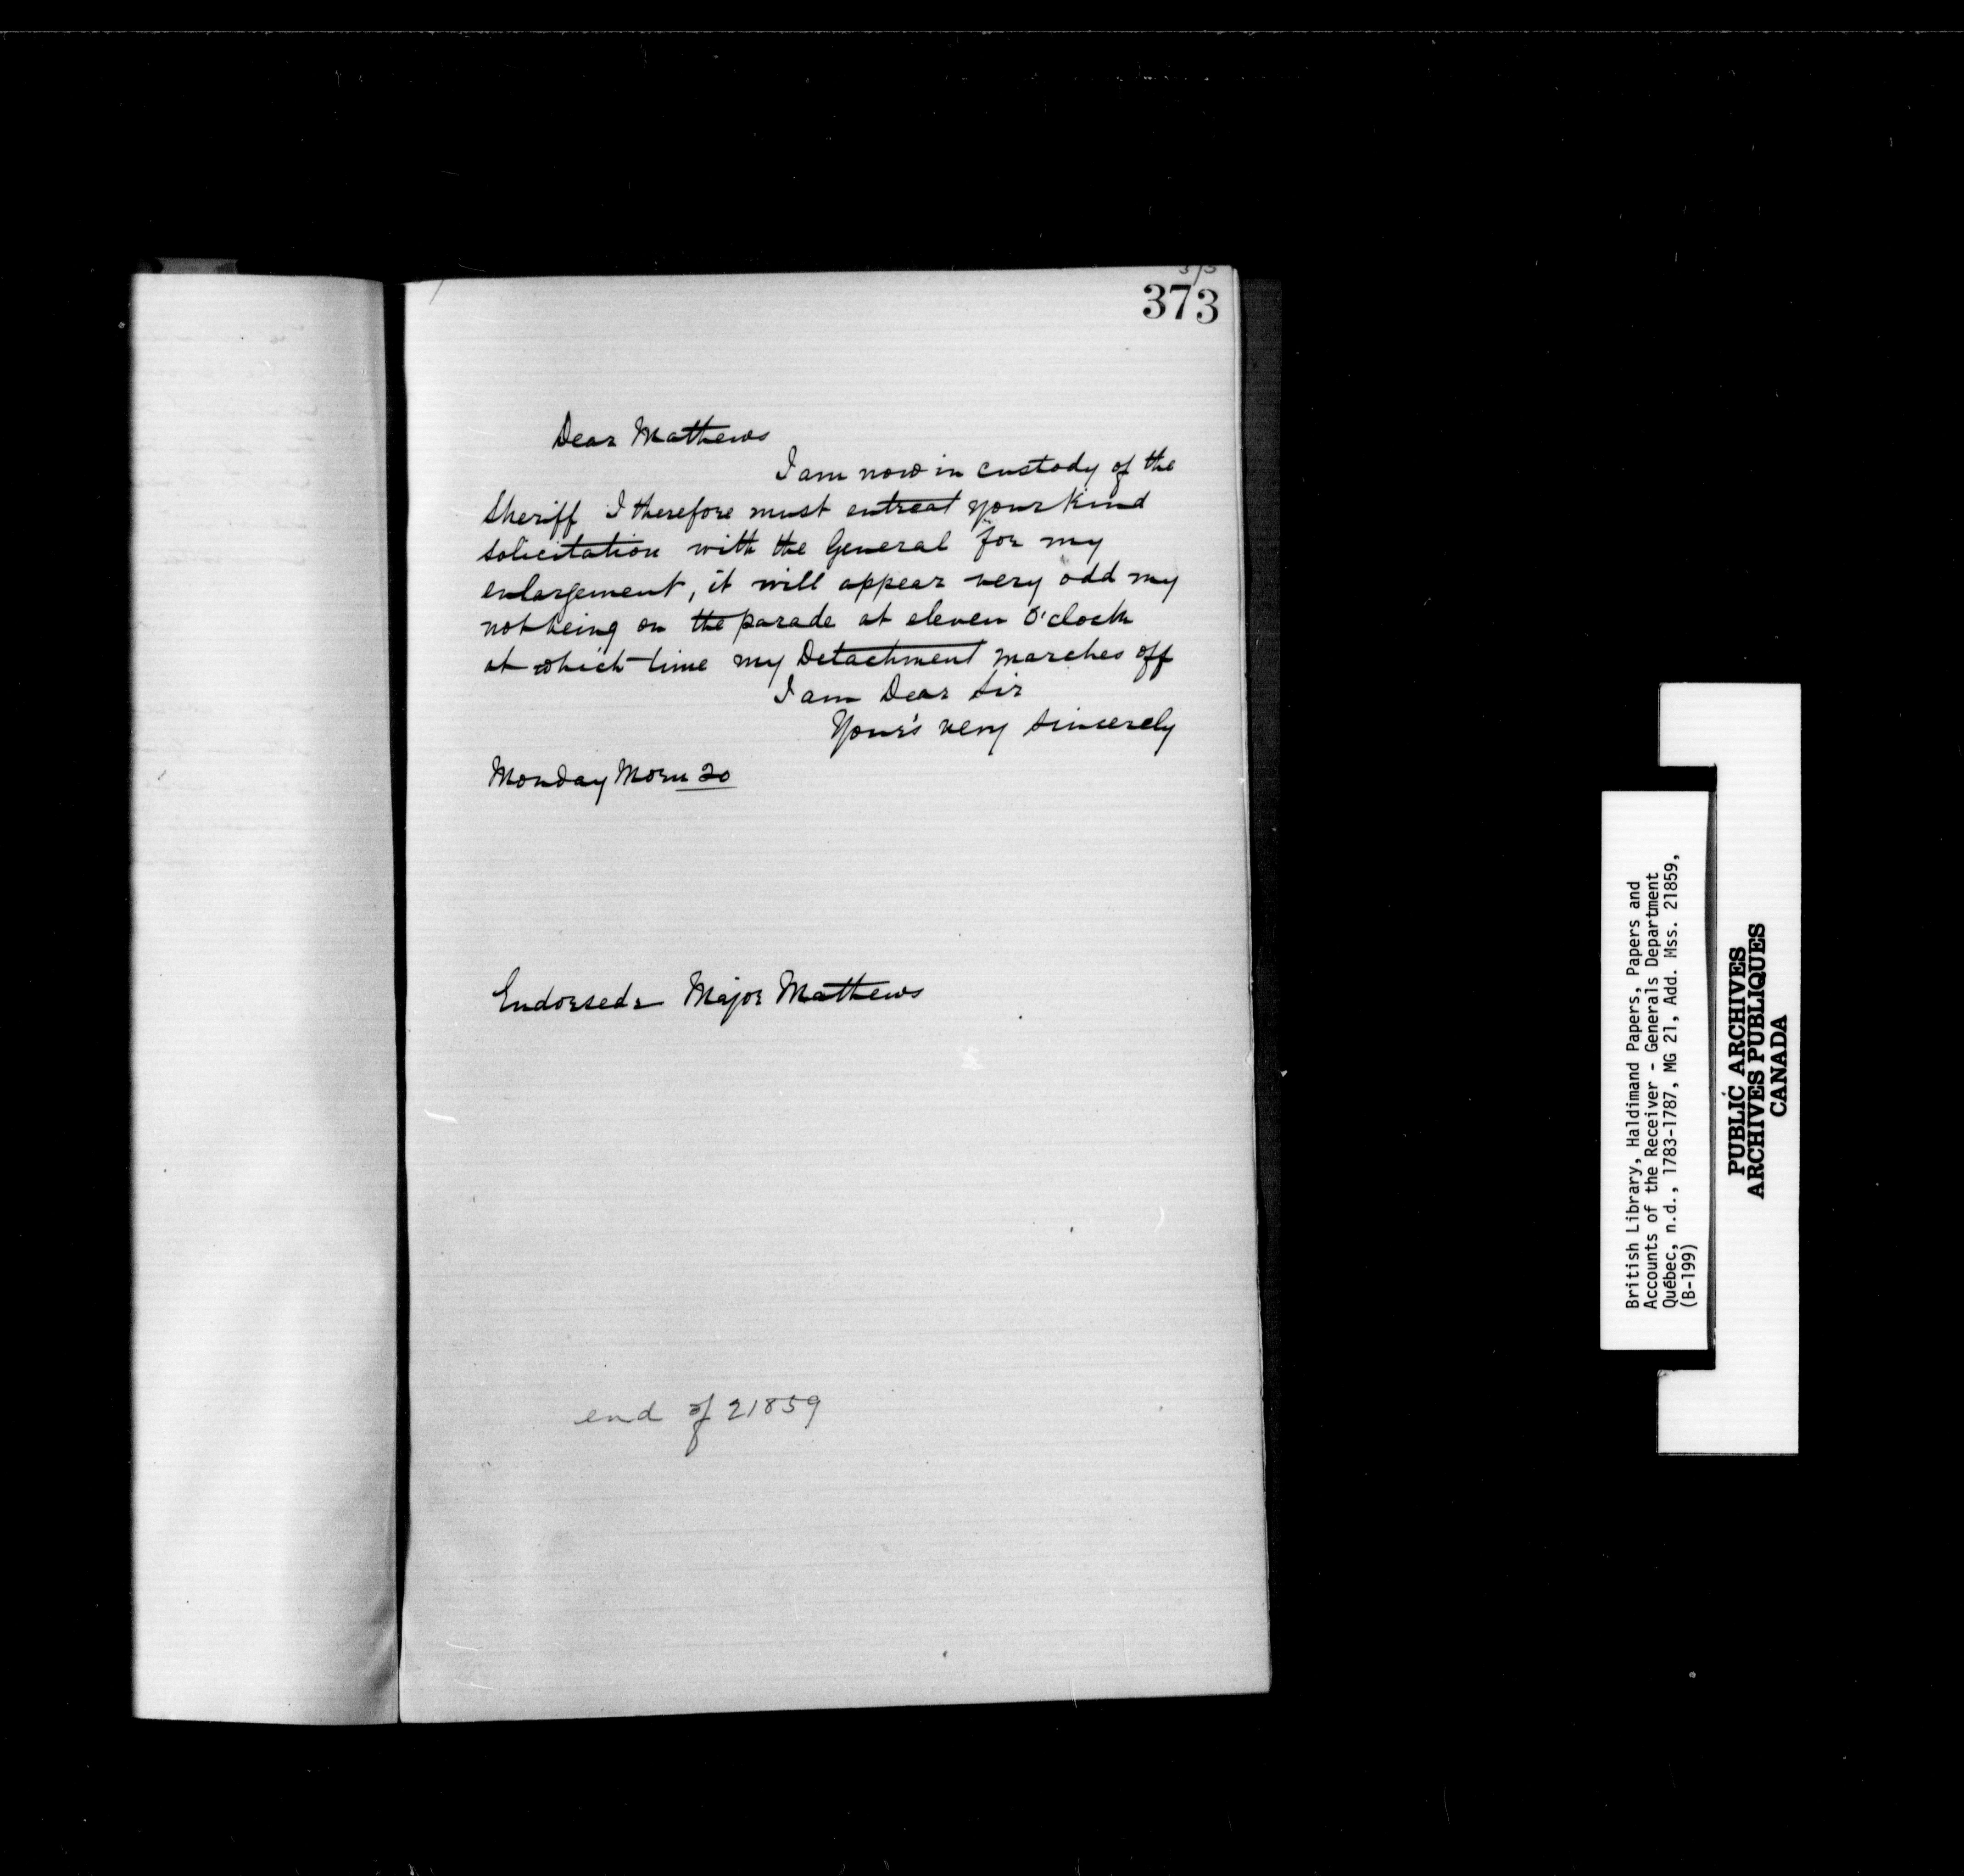 373
Dear Mathews
I am now in custody of the
Sheriff I therefore must entreat your kind
solicitation with the General for my
enlargement, it will appear very odd my
not being on the parade at eleven O'clock
at which time my Detachment marches off
I am Dear Sir
Your's very sincerely
Monday Morn 20
Endorsed:- Major Mathews
end of 21859
British Library, Haldimand Papers, Papers and
Accounts of the Receiver - Generals Department
Québec, n.d., 1783-1787, MG 21, Add. Mss. 21859,
(B-199)
PUBLIC ARCHIVES
ARCHIVES PUBLIQUES
CANADA